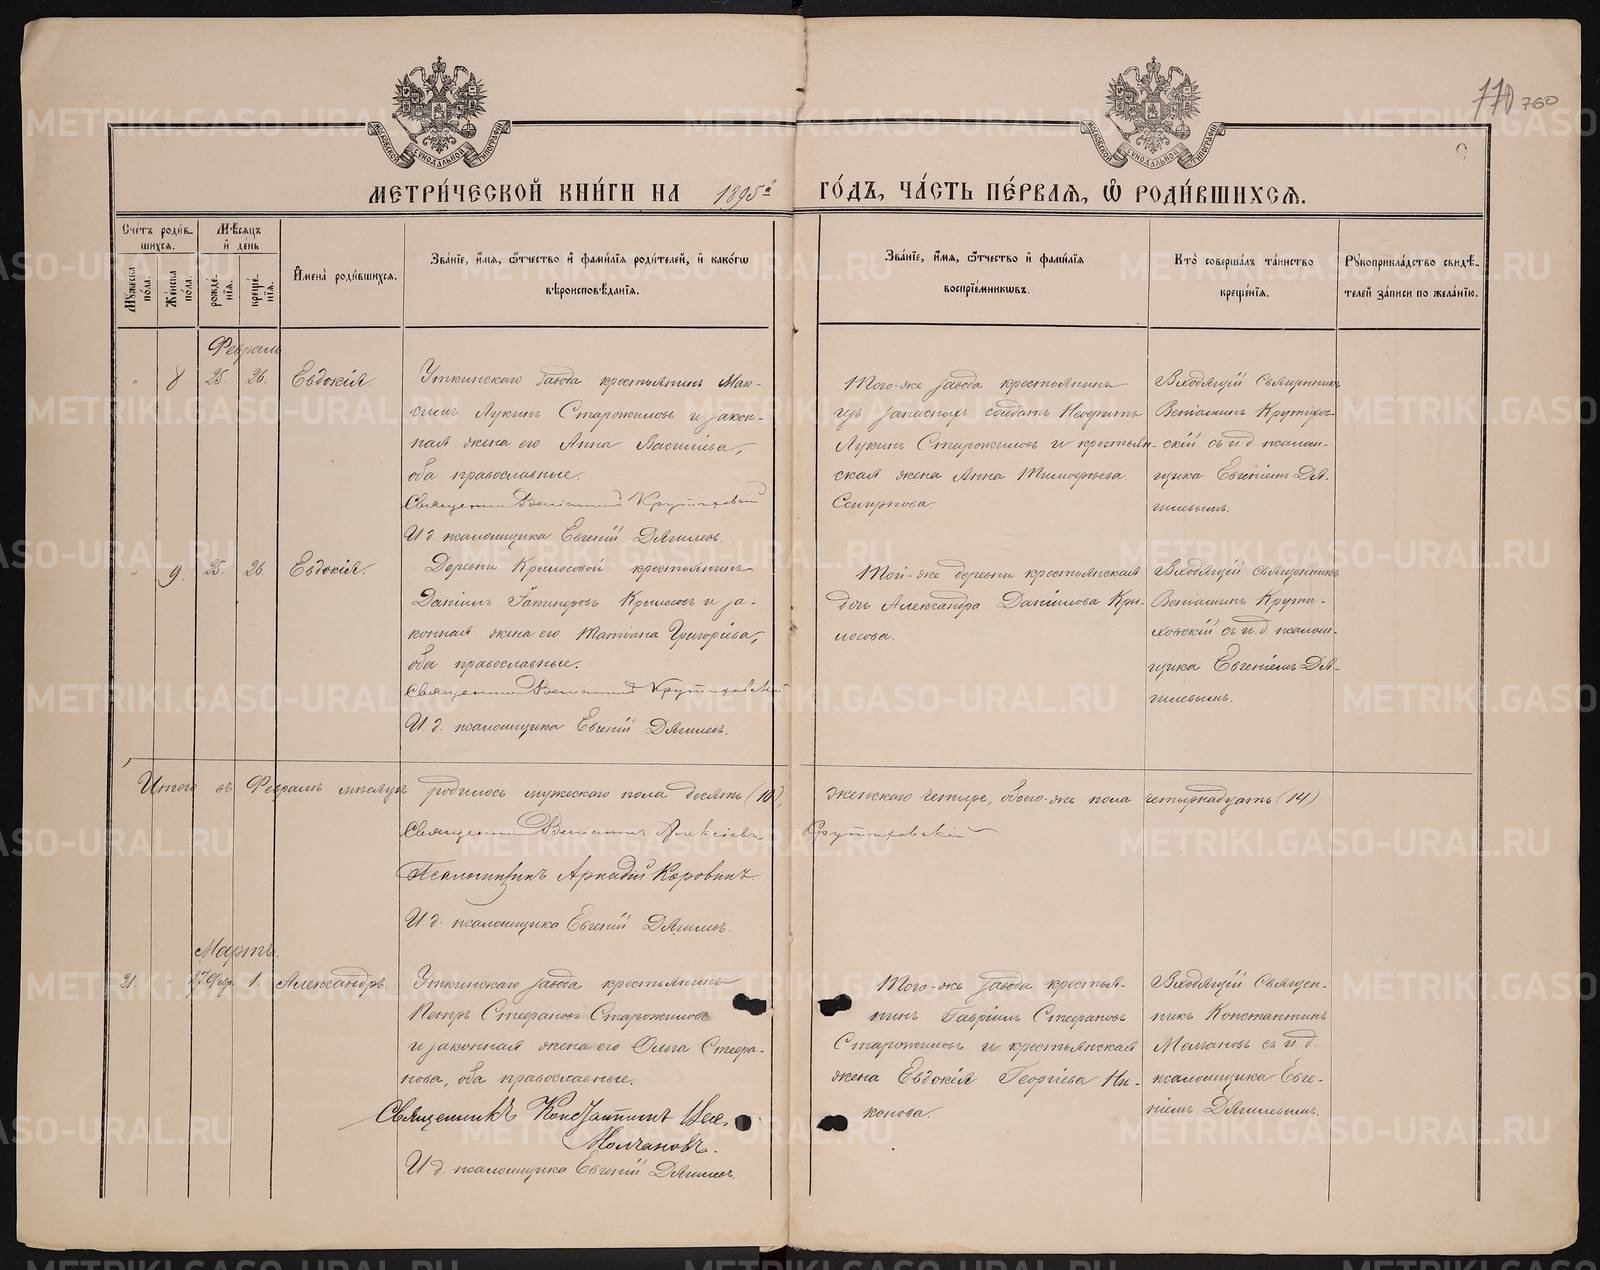 770 760
МЕТРИ́ЧЕСКОЙ КНИ́ГИ НА 1895 г ГО́ДЪ, ЧА́СТЬ ПЕ́РВАЯ, Ѡ РОДИ́ВШИХСЯ.
Счетъ родившихся.
Мѣсяцъ и день
Мужеска пола.
Женска пола.
рожденія.
крещенія.
Имена родившихся.
Званіе, имя, отчество и фамилія родителей, и какогѡ вѣроисповѣданія.
Званіе, имя, отчество и фамилія воспріемниковъ.
Кто совершалъ таинство крещенія.
Рукоприкладство свидѣтелей записи по желанію.
Февраль.
" 8 25. 26. Евдокія.
Уткинскаго Завода крестьянинъ Мак-
симъ Лукинъ Старожиловъ и закон-
ная жена его Анна Васильева,
оба православные.
Священникъ Веніаминъ Крутиховскій
И. д. псаломщика Евгеній Дягилевъ.
Того-же завода крестьянинъ
изъ запасныхъ солдатъ Неофитъ
Лукинъ Старожиловъ и крестьян-
ская жена Анна Тимофеева
Смирнова.
Входящій священникъ
Веніаминъ Крутихов-
скій съ и. д. псалом-
щика Евгеніемъ Дя-
гилевымъ.
" 9. 25. 26. Евдокія.
Деревни Крылосовой крестьянинъ
Даніилъ Крылосовъ и за-
конная жена его Татіана Григорьева,
оба православные.
Священникъ Веніаминъ Крутиховскій
И. д. псаломщика Евгеній Дягилевъ.
Той-же деревни крестьянская
дочь Александра Даніилова Кры-
лосова.
Входящій священникъ
Веніаминъ Крути-
ховскій съ и. д. псалом-
щика Евгеніемъ Дя-
гилевымъ.
Итого въ Февралѣ мѣсяцѣ родилось мужескаго пола десять (10), женскаго четыре, обоего-же пола четырнадцать (14)
Священникъ Веніаминъ Алексіевъ Крутиховскій
Псаломщикъ Аркадій Коровинъ
И. д. псаломщика Евгеній Дягилевъ.
Мартъ.
21. " 27 Фвр. 1. Александръ.
Уткинскаго завода крестьянинъ
Петръ Стефановъ Старожиловъ
и законная жена его Ольга Стефа-
нова, оба православные.
Священникъ Константинъ
Молчановъ.
И. д. псаломщика Евгеній Дягилевъ.
Того-же завода крестья-
нинъ Гавріилъ Стефановъ
Старожиловъ и крестьянская
жена Евдокія Георгіева Ни-
конова.
Входящій священ-
никъ Константинъ
Молчановъ съ и. д.
псаломщика Евге-
ніемъ Дягилевымъ.
METRIKI.GASO-URAL.RU